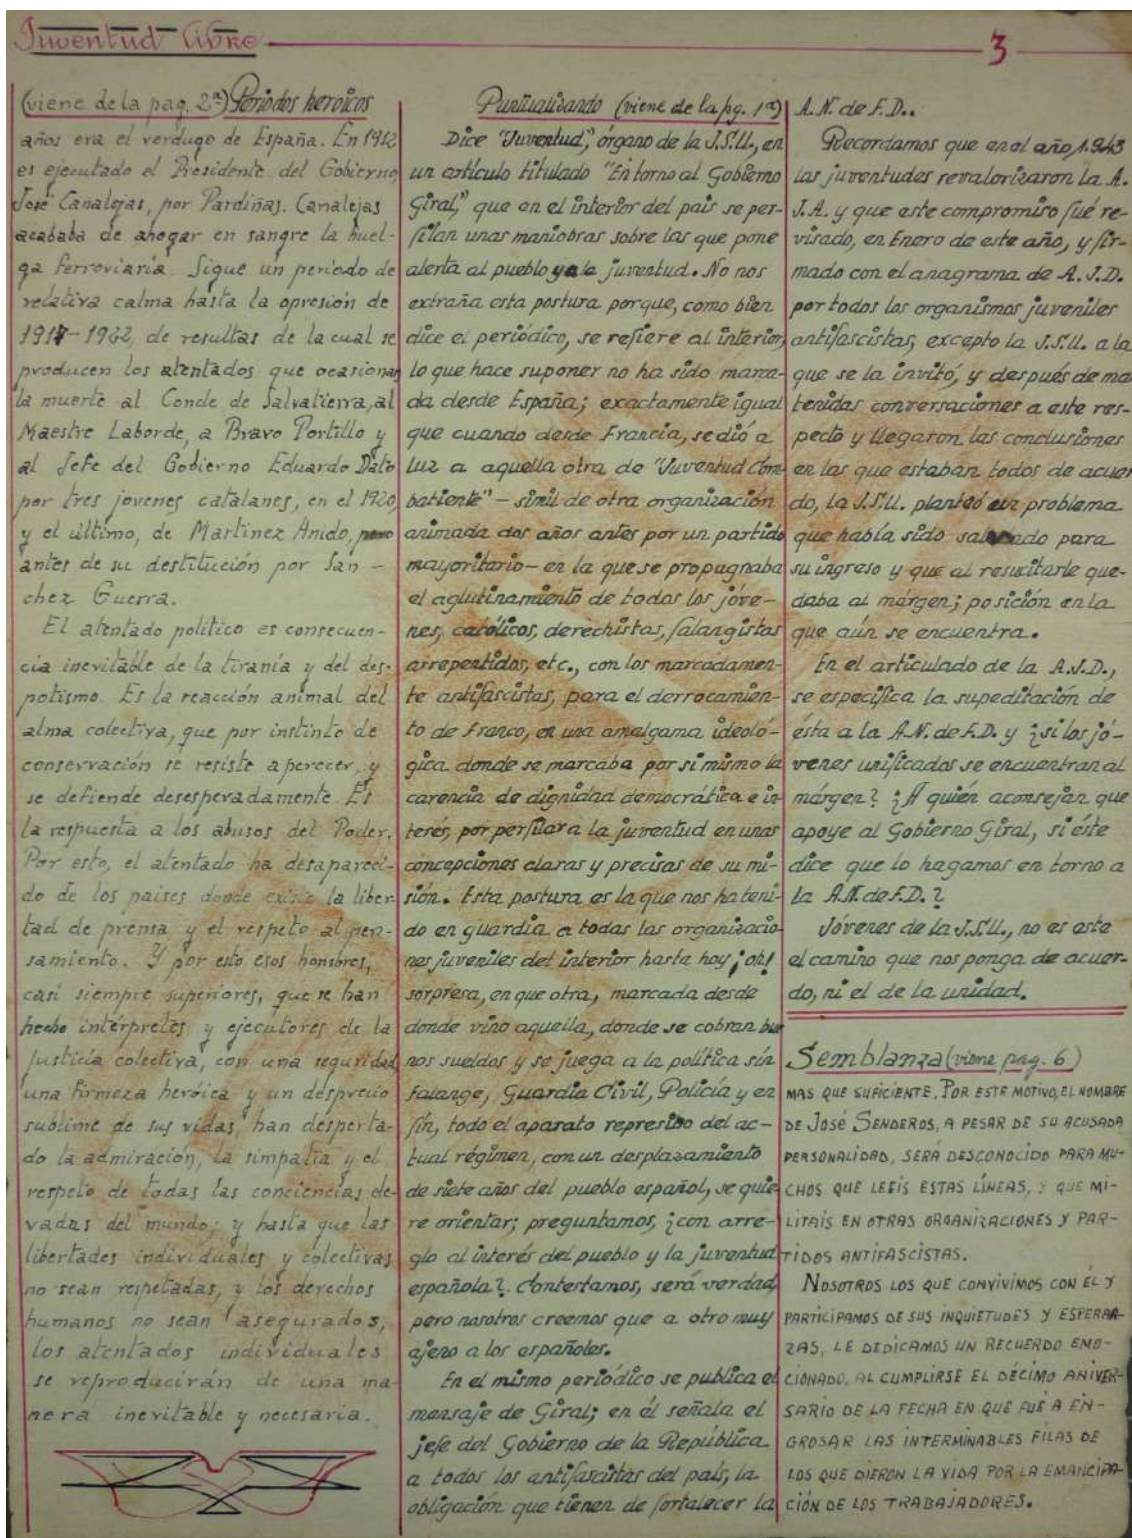 Juventud libre
3
(viene de la pag. 2ª) Periodos heroicos
años era el verdugo de España. En 1912
es ejecutado el Presidente del Gobierno,
José Canalejas, por Pardiñas. Canalejas
acababa de ahogar en sangre la huel-
ga ferroviaria. Sigue un periodo de
relativa calma hasta la opresión de
1917-1922, de resultas de la cual se
producen los atentados que ocasionan
la muerte al Conde de Salvatierra, al
Maestre Laborde, a Bravo Portillo y
al Jefe del Gobierno Eduardo Dato
por tres jovenes catalanes, en el 1920,
y el último, de Martinez Anido, pero
antes de su destitución por San-
chez Guerra.
El atentado politico es consecuen-
cia inevitable de la tirania y del des-
potismo. Es la reacción animal del
alma colectiva, que por instinto de
conservación se resiste a perecer, y
se defiende desesperadamente. Es
la respuesta a los abusos del Poder.
Por esto, el atentado ha desapareci-
do de los paises donde existe la liber-
tad de prensa y el respeto al pen-
samiento. Y por esto esos hombres,
casi siempre superiores, que se han
hecho intérpretes y ejecutores de la
justicia colectiva, con una seguridad,
una firmeza heróica y un desprecio
sublime de sus vidas, han desperta-
do la admiración, la simpatia y el
respeto de todas las conciencias ele-
vadas del mundo; y hasta que las
libertades individuales y colectivas
no sean respetadas, y los derechos
humanos no sean asegurados,
los atentados individuales
se reproducirán de una ma-
nera inevitable y necesaria.
Puntualizando (viene de la pg. 1ª)
Dice "Juventud", órgano de la J.S.U., en
un artículo titulado "En torno al Gobierno
Giral," que en el interior del pais se per-
filan unas maniobras sobre las que pone
alerta al pueblo y a la juventud. No nos
extraña esta postura porque, como bien
dice el periódico, se refiere al interior,
lo que hace suponer no ha sido marca-
da desde España; exactamente igual
que cuando desde Francia, se dió a
luz a aquella otra de "Juventud Com-
batiente" - simil de otra organización
animada dos años antes por un partido
mayoritario - en la que se propugnaba
el aglutinamiento de todos los jóve-
nes, católicos, derechistas, falangistas
arrepentidos, etc., con los marcadamen-
te antifascistas, para el derrocamien-
to de Franco, en una amalgama ideoló-
gica donde se marcaba por si mismo la
carencia de dignidad democrática e in-
terés, por perfilar a la juventud en unas
concepciones claras y precisas de su mi-
sión. Esta postura es la que nos ha teni-
do en guardia a todas las organizacio
nes juveniles del interior hasta hoy ¡oh!
sorpresa, en que otra, marcada desde
donde vino aquella, donde se cobran bue
nos sueldos y se juega a la política sin
Falange, Guardia Civil, Policía y en
fin, todo el aparato represivo del ac-
tual régimen, con un desplazamiento
de siete años del pueblo español, se quie
re orientar; preguntamos, ¿con arre-
glo al interés del pueblo y la juventud
española?. Contestamos, será verdad,
pero nosotros creemos que a otro muy
ajeno a los españoles.
En el mismo periódico se publica el
mensaje de Giral; en él señala el
jefe del Gobierno de la República
a todos los antifascistas del país, la
obligación que tienen de fortalecer la
A.N. de F.D..
Recordamos que en el año 1.943
las juventudes revalorizaron la A.
J.A. y que este compromiso fué re-
visado, en Enero de este año, y fir-
mado con el anagrama de A.J.D.
por todos los organismos juveniles
antifascistas, excepto la J.S.U. a la
que se la invitó, y después de man
tenidas conversaciones a este res-
pecto y llegaron las conclusiones
en las que estaban todos de acuer-
do, la J.S.U. planteó un problema
que había sido salvado para
su ingreso y que al resucitarle que-
daba al márgen; posición en la
que aún se encuentra.
En el articulado de la A.J.D.,
se especifica la supeditación de
ésta a la A.N. de F.D. y ¿si los jó-
venes unificados se encuentran al
márgen? ¿A quién aconsejan que
apoye al Gobierno Giral, si éste
dice que lo hagamos en torno a
la A.N. de F.D.?
Jóvenes de la J.S.U., no es este
el camino que nos ponga de acuer-
do, ni el de la unidad.
Semblanza (viene pag. 6)
MAS QUE SUFICIENTE. POR ESTE MOTIVO, EL NOMBRE
DE JOSÉ SENDEROS, A PESAR DE SU ACUSADA
PERSONALIDAD, SERÁ DESCONOCIDO PARA MU-
CHOS QUE LEEIS ESTAS LÍNEAS, Y QUE MI-
LITAIS EN OTRAS ORGANIZACIONES Y PAR-
TIDOS ANTIFASCISTAS.
NOSOTROS LOS QUE CONVIVIMOS CON ÉL Y
PARTICIPAMOS DE SUS INQUIETUDES Y ESPERAN-
ZAS, LE DEDICAMOS UN RECUERDO EMO-
CIONADO, AL CUMPLIRSE EL DÉCIMO ANIVER-
SARIO DE LA FECHA EN QUE FUÉ A EN-
GROSAR LAS INTERMINABLES FILAS DE
LOS QUE DIERON LA VIDA POR LA EMANCIPA-
CIÓN DE LOS TRABAJADORES.